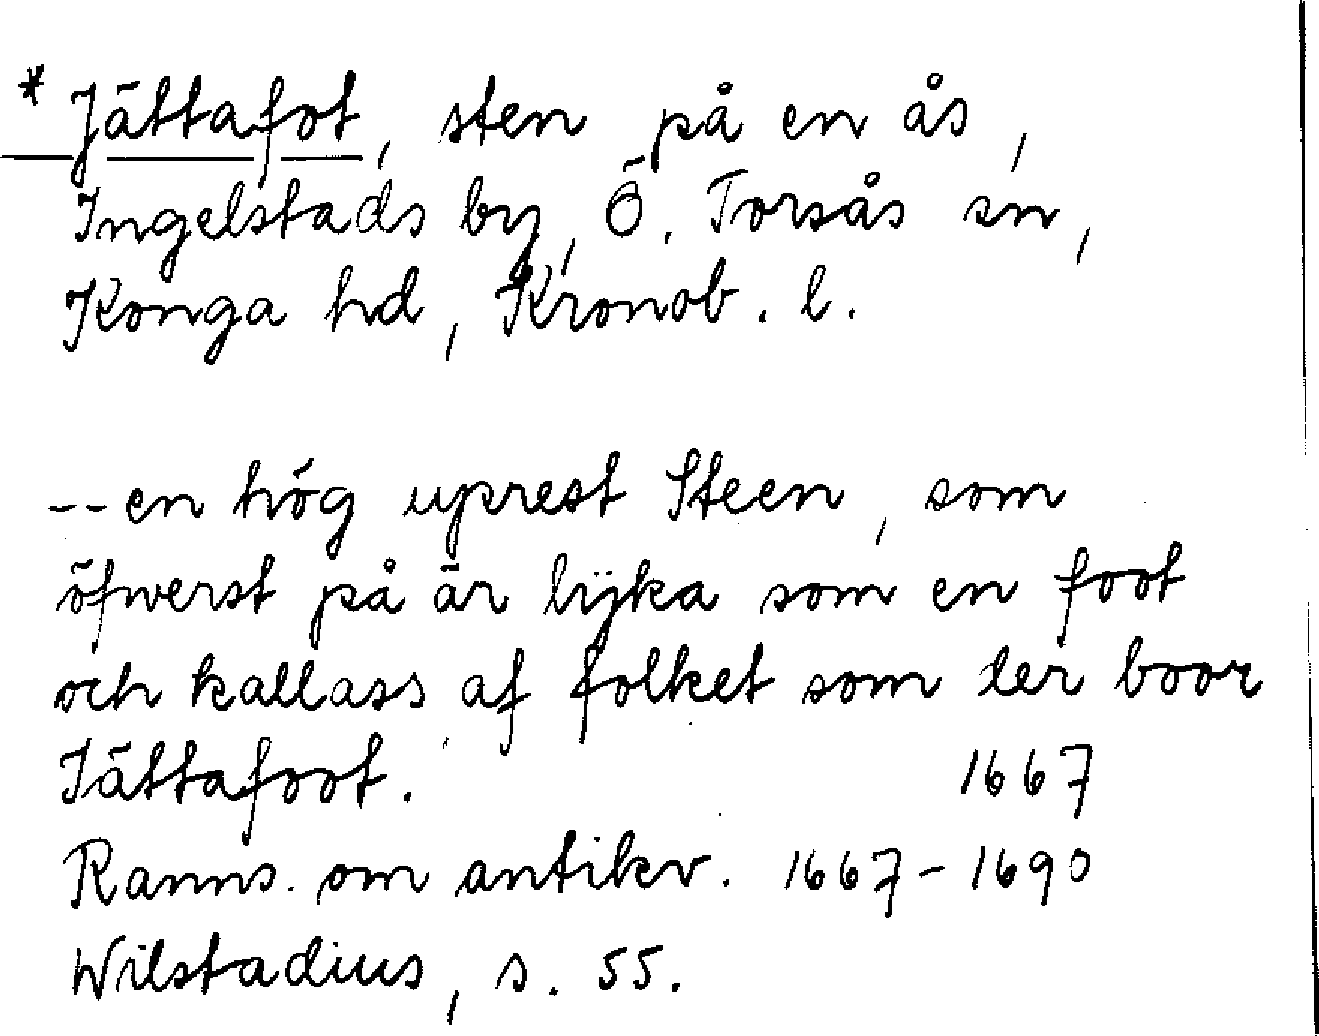 * Jättafot, sten på en ås,
Ingelstads by, Ö. Torsås sn,
Konga hd, Kronob. l.
-- en hög uprest Steen, som
öfwerst på är lÿka som en foot
och kallass af folket som ter boor
Jättafoot. 1667
Ranns. om antikv. 1667-1690
Wilstadius, s. 55.